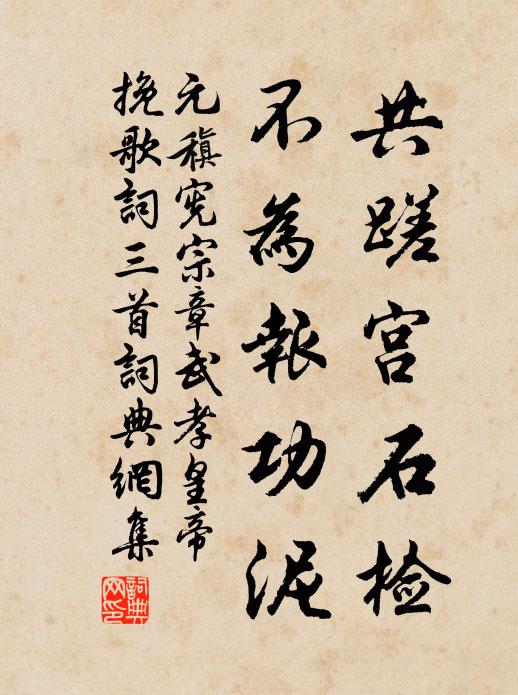 共蹉宫石检
不為報功泥
元稹宪宗章武孝皇帝
挽歌詞三首詞典網集
詞典網印